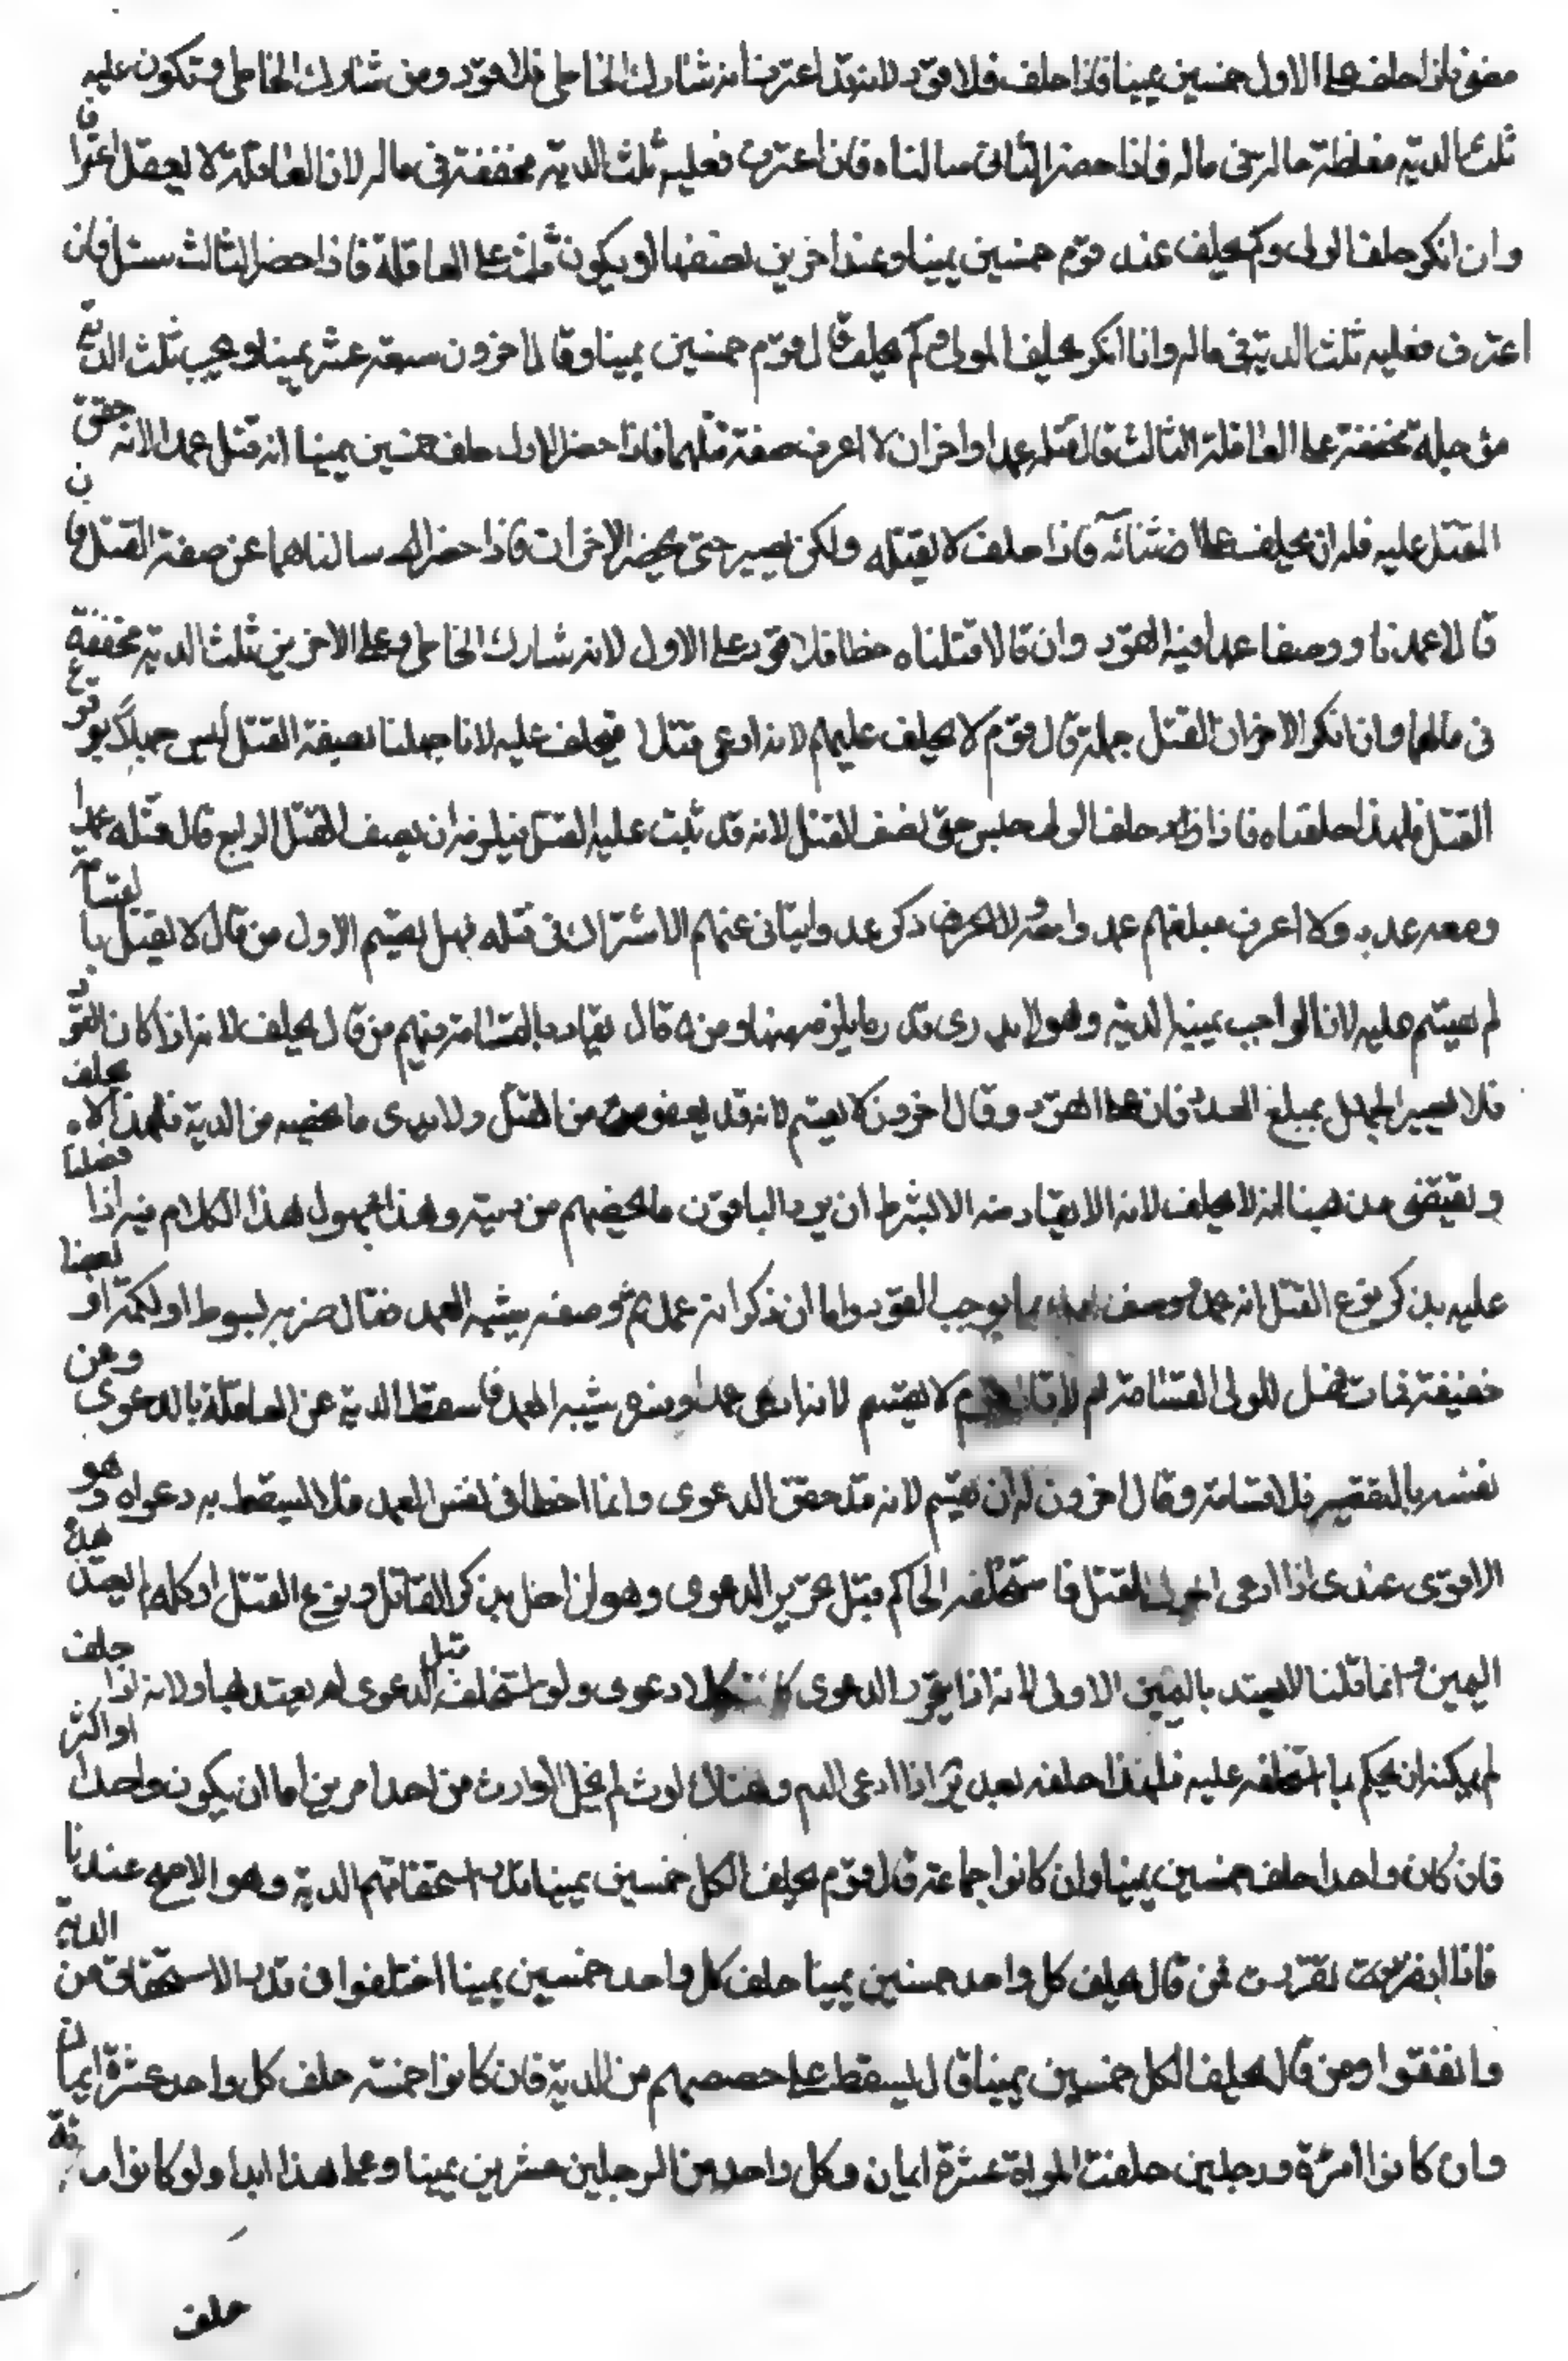 مضى فاذا حلف على الاول خمسين يمينا فاذا حلف فلا قود لانه قد اعترف انه شارك الخاطى فلا قود ومن شارك الخاطى وتكون عليه
ثلث الدية مغلظة حالة فى ماله فاذا حضر الثانى سالناه فان اعترف فعليه ثلث الدية مخففة فى ماله لان العاقلة لا يعقل اعترافا
وان انكر حلف الولى وكم يحلف عند قوم خمسين يمينا وعند اخرين نصفها او يكون ثلث على العاقلة فاذا حضر الثالث سئل فان
اعترف فعليه ثلث الدية فى ماله وانا انكر يحلف المولى وكم يحلف قال قوم خمسين يمينا وقال اخرون سبعة عشر يمينا ويجب ثلث الدية
مؤجلة مخففة على العاقلة الثالث قال قتله عمدا واخران لا اعرف صفة قتلهما فاذا حضر الاول حلف خمسين يمينا انه قتل عمدا لانه حقق
القتل عليه فله ان يحلف على فاذا حلف لا يقتله ولكن يصير حتى يحضر الاخرات فاذا حضرا سالناهما عن صفة القتل فان
قالا عمدنا ووصفا عمدا فيه القود وان قالا قتلناه خطا فلا قود على الاول لانه شارك الخاطى وعلى الاخرين ثلث الدية مخففة
فى مالهما وان انكر الاخران القتل جملة قال قوم لا يحلف عليهم لانه ادعى قتلا فيحلف عليه لانا جهلنا بصفة القتل ليس جهلا بوقوع
القتل فلهذا احلفناه فاذا حلف الولى حبس حتى يصف القتل لانه قد ثبت عليه القتل فيلزمه ان يصف القتل الرابع قال قتله عمدا
ومعه عدد ولا اعرف مبلغهم عمد وا ذكر عددا يتاتى عنهم الاشتراك فى قتله فهل يقسم الاول من قال لا يقتل بالقسامة
لم يقسم عليه لان الواجب يمينه الدية وهو لا يدرى قدر ما يلزمه منها ومن قال يقاد بالقسامة منهم من قال يحلف لانه اذا كان القود
فلا يصير الجهل بمبلغ العدد فان القود وقال اخرون لا يقسم لانه قد يعفو عن القتل ولا يدرى ما يخصه من الدية فلهذا لا يحلف
ويقتضى مذهبنا انه لا يحلف لانه لا يقاد منه الا بشرط ان يرد الباقون ما يخصهم من ديته وهذا مجهول هذا الكلام فيه اذا فصلنا
عليه بذكر نوع القتل انه عمد ووصف العمد بما يوجب القود واما ان ذكر انه عمد ثم وصفه بشبه العمد فقال ضربه بسوط او لكمة او بعصا
خفيفة فمات فهل للولى القسامة ام لا قال قوم لا يقسم لانه ادعى عمدا وفسره بشبه العمد فاسقط الدية عن العاقلة بالدعوى وعن
نفسه بالتفسير فلا قسامة وقال اخرون له ان يقسم لانه قد حقق الدعوى وانما اخطا فى نفس العمد فلا يسقط به دعواه وهو
الاقوى عندى اذا ادعى القتل فاستحلفه الحاكم قبل تحرير الدعوى وهو ان اخل بذكر القاتل ونوع القتل او كلها لم يعتد هذه
اليمين وانما قلنا لا يعتد باليمين الاولى لانه اذا لم يحرر الدعوى كانت كلا دعوى ولو استحلف قبل الدعوى لم يعتد بها ولانه اذا حلف
لم يمكنه ان يحكم بما استحلفه عليه فلهذا احلفه بعد اذا ادعى الدم وهناك لوث لم يخل الوارث من احد امرين اما ان يكون واحدا او اكثر
فان كان واحدا حلف خمسين يمينا وان كانوا جماعة قال قوم يحلف الكل خمسين يمينا بقدر استحقاقهم الدية وهو الاصح عندنا
فاذا تقررت فمن قال يحلف كل واحد خمسين يمينا حلف كل واحد خمسين يمينا اختلفوا فى قدر الاستحقاق من الدية
واتفقوا ومن قال يحلف الكل خمسين يمينا قال يسقط على حصصهم من الدية فان كانوا خمسة حلف كل واحد عشرة ايمان
وان كانوا امرئة ورجلين حلفت المراة عشرة ايمان وكل واحد من الرجلين عشرين يمينا وعلى هذا ابدا ولو كانوا مائة
حلف